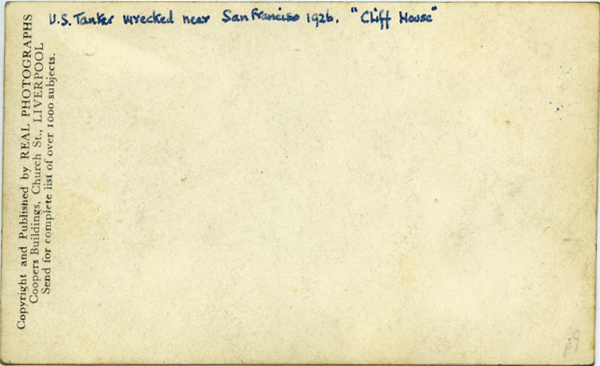 U.S. Tanker wrecked near San Francisco 1926. "Cliff House"
Copyright and Published by REAL PHOTOGRAPHS
Coopers Buildings, Church St., LIVERPOOL
Send for complete list of over 1000 subjects.